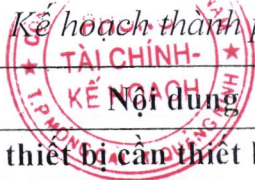 Kế hoạch thành p
TÀI CHÍNH-
KẾ HOẠCH
Nội dung
thiết bị cần thiết